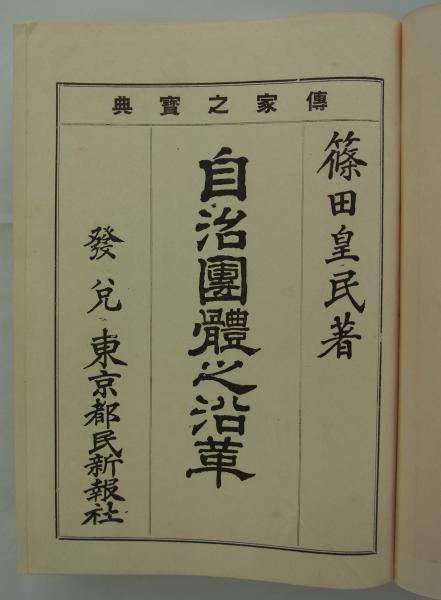 傳家之寳典
篠田皇民著
自治團體之沿革
發兌 東京都民新報社